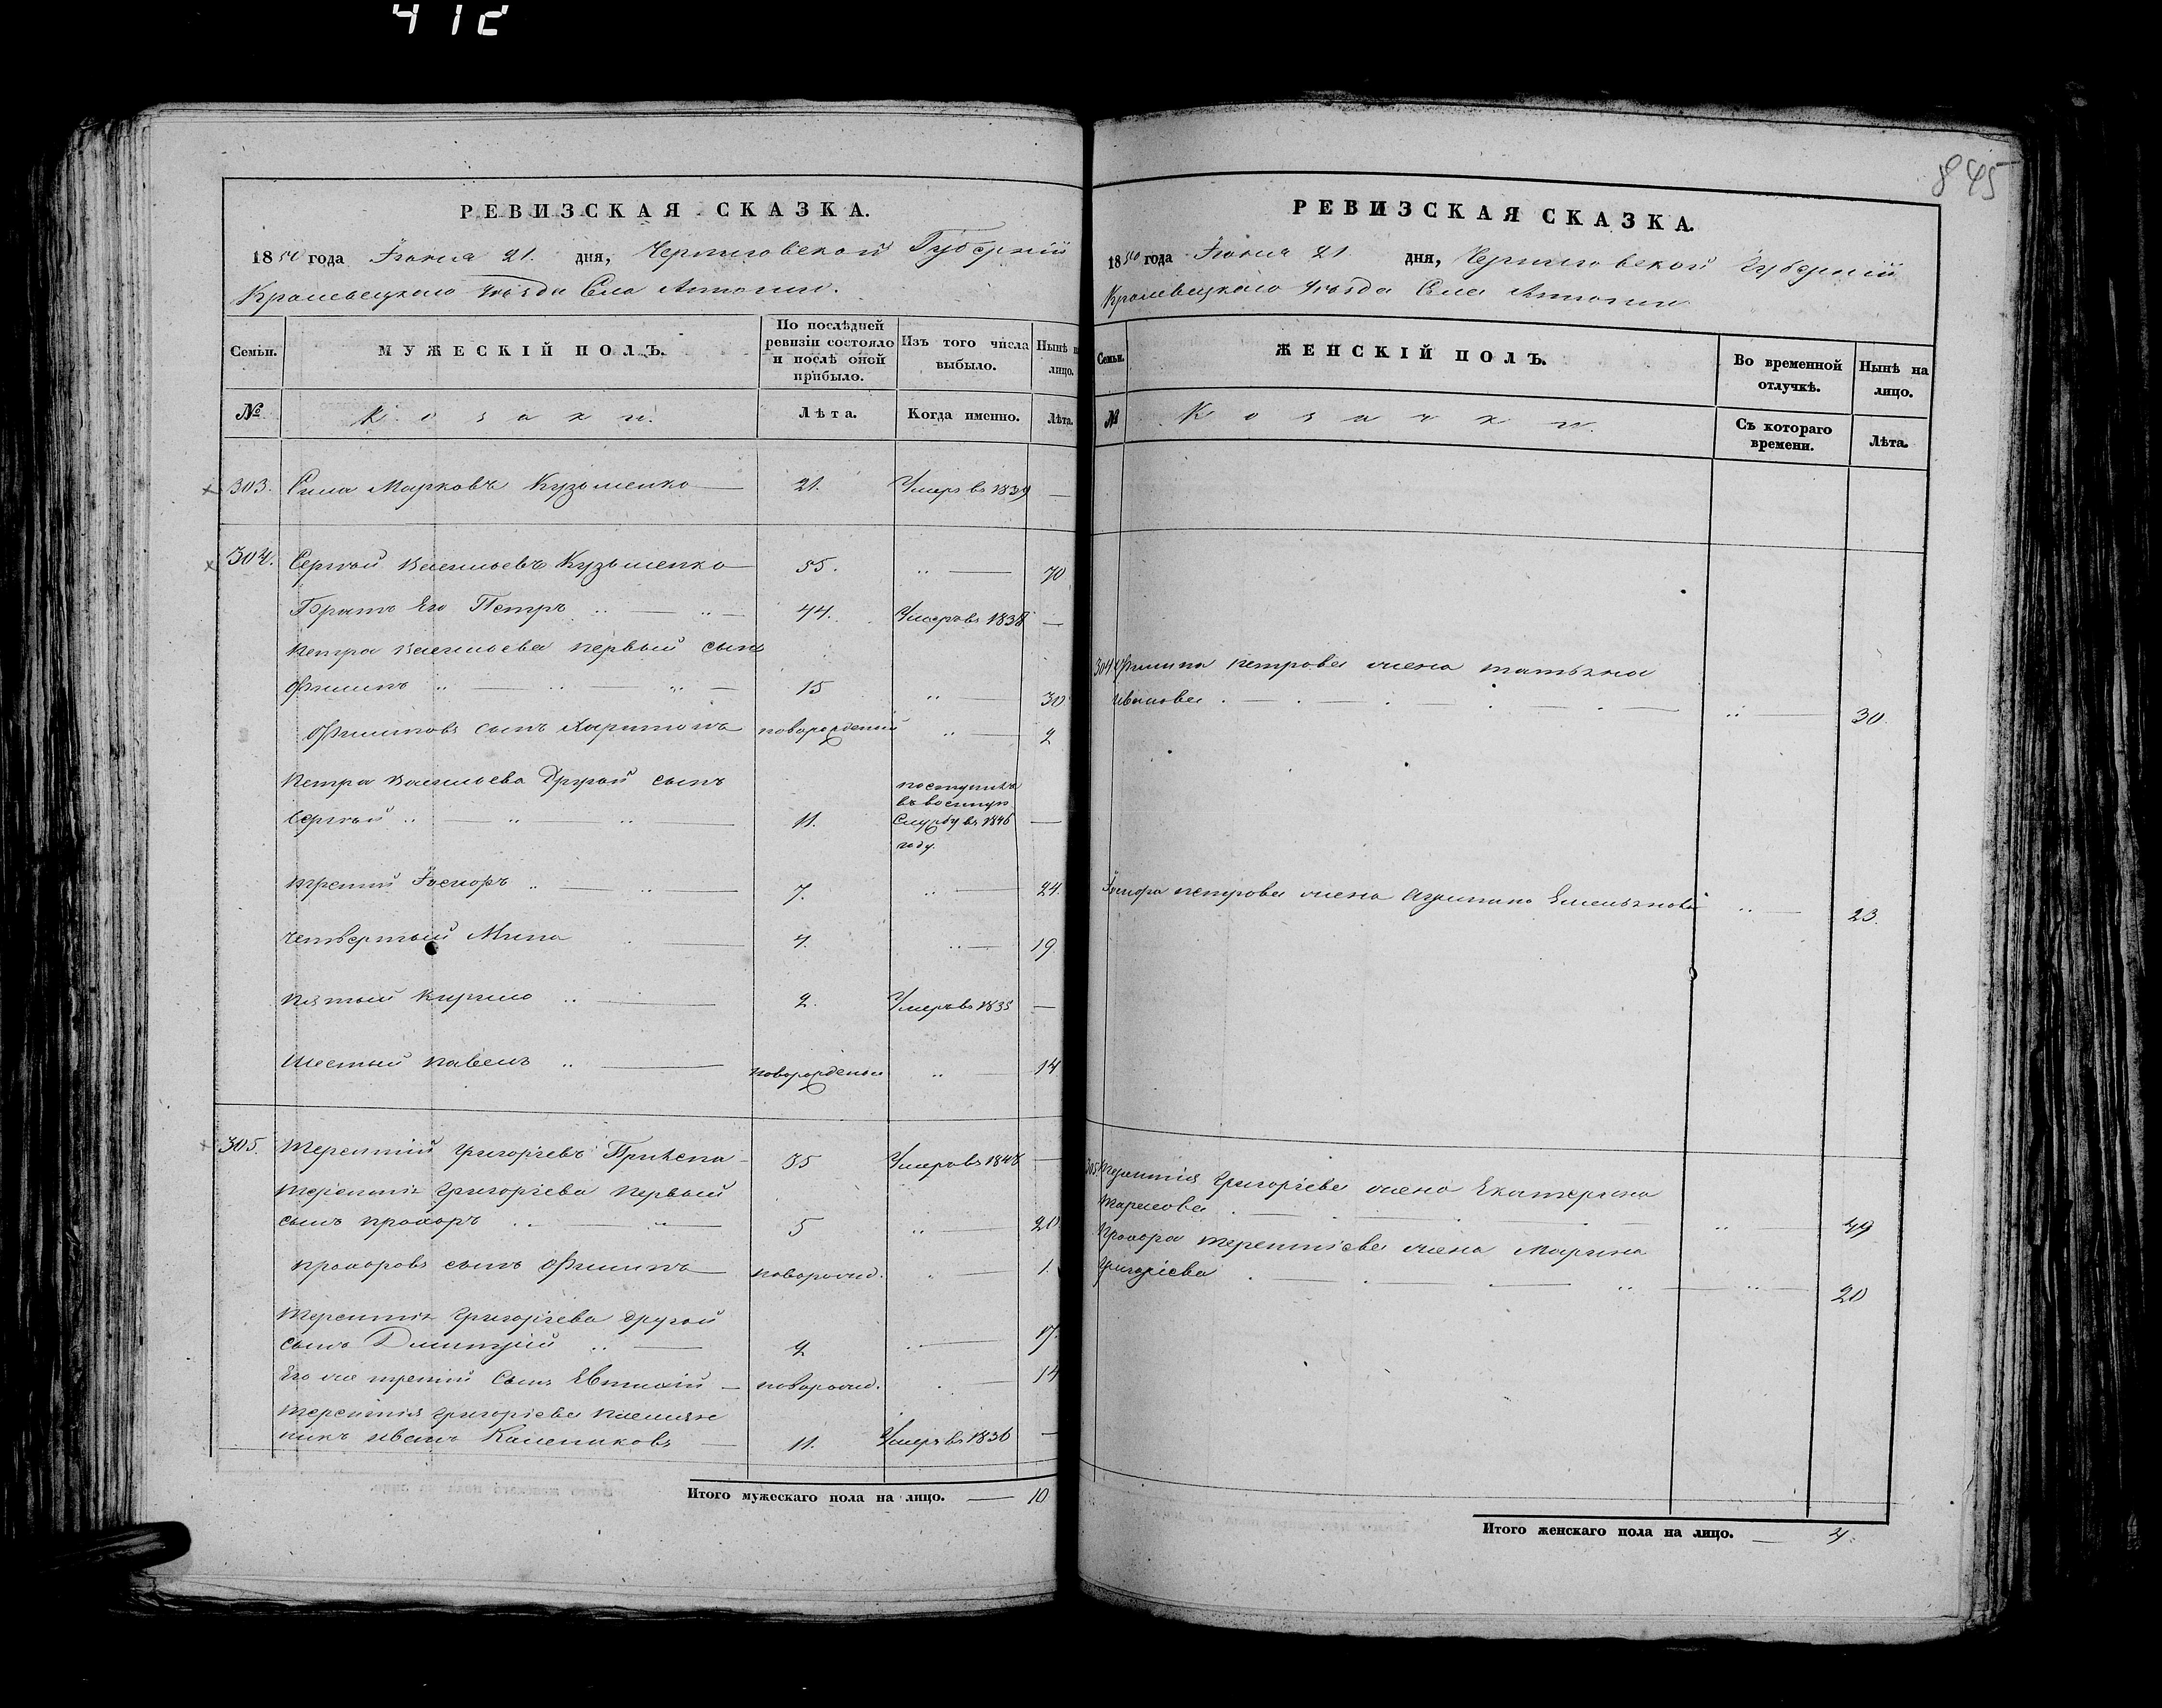 412
845
РЕВИЗСКАЯ СКАЗКА.
1850 года Іюня 21. дня, Черниговской Губерніи
Кролевецкаго уѣзда
Семьи.
МУЖЕСКІЙ ПОЛЪ.
По послѣдней ревизіи состояло и послѣ оной прибыло.
Изъ того числа выбыло.
Нынѣ на лицо.
№
Козаки.
Лѣта.
Когда именно.
Лѣта.
303. Сила Марковъ Кузьменко 21. Умеръ въ 1839 —
304. Сергѣй Васильевъ Кузьменко 55. 70
Братъ Его Петръ 44. Умеръ въ 1838 —
Петра Васильева первый сынъ
Филипъ 15 30
Филиповъ сынъ Харитонъ новорожденый 2
Петра Васильева другой сынъ
Сергѣй 11. поступилъ
въ военную
службу въ 1846 —
году.
третій 7. 24.
четвертый Мина 4. 19.
пятый Кирило 2. Умеръ въ 1835 —
шестый Павелъ новорожденый 14
305. Терентій Григоріевъ 35 Умеръ въ 1848 —
Терентія Григоріева первый
сынъ Прохоръ 5 20
Прохоровъ сынъ Филипъ новорожд. 1.
Терентія Григоріева другой
сынъ Дмитрій 2 17.
Его же третій сынъ Евтихій новорожд. 14
Терентія Григоріева племян
никъ Иванъ 11. Умеръ въ 1836 —
Итого мужескаго пола на лицо. — 10
РЕВИЗСКАЯ СКАЗКА.
1850 года Іюня 21 дня, Черниговской Губерніи
Кролевецкаго уѣзда
Семьи.
ЖЕНСКІЙ ПОЛЪ.
Во временной отлучкѣ.
Нынѣ на лицо.
№
Козачки.
Съ котораго времени.
Лѣта.
304 Филипа Петрова жена Татьяна
Иванова 30.
Петрова жена Агрипина Емельянова 23.
305 Терентія Григоріева жена Екатерина
49
Прохора Терентіева жена Марина
Григоріева 20
Итого женскаго пола на лицо. — 4.